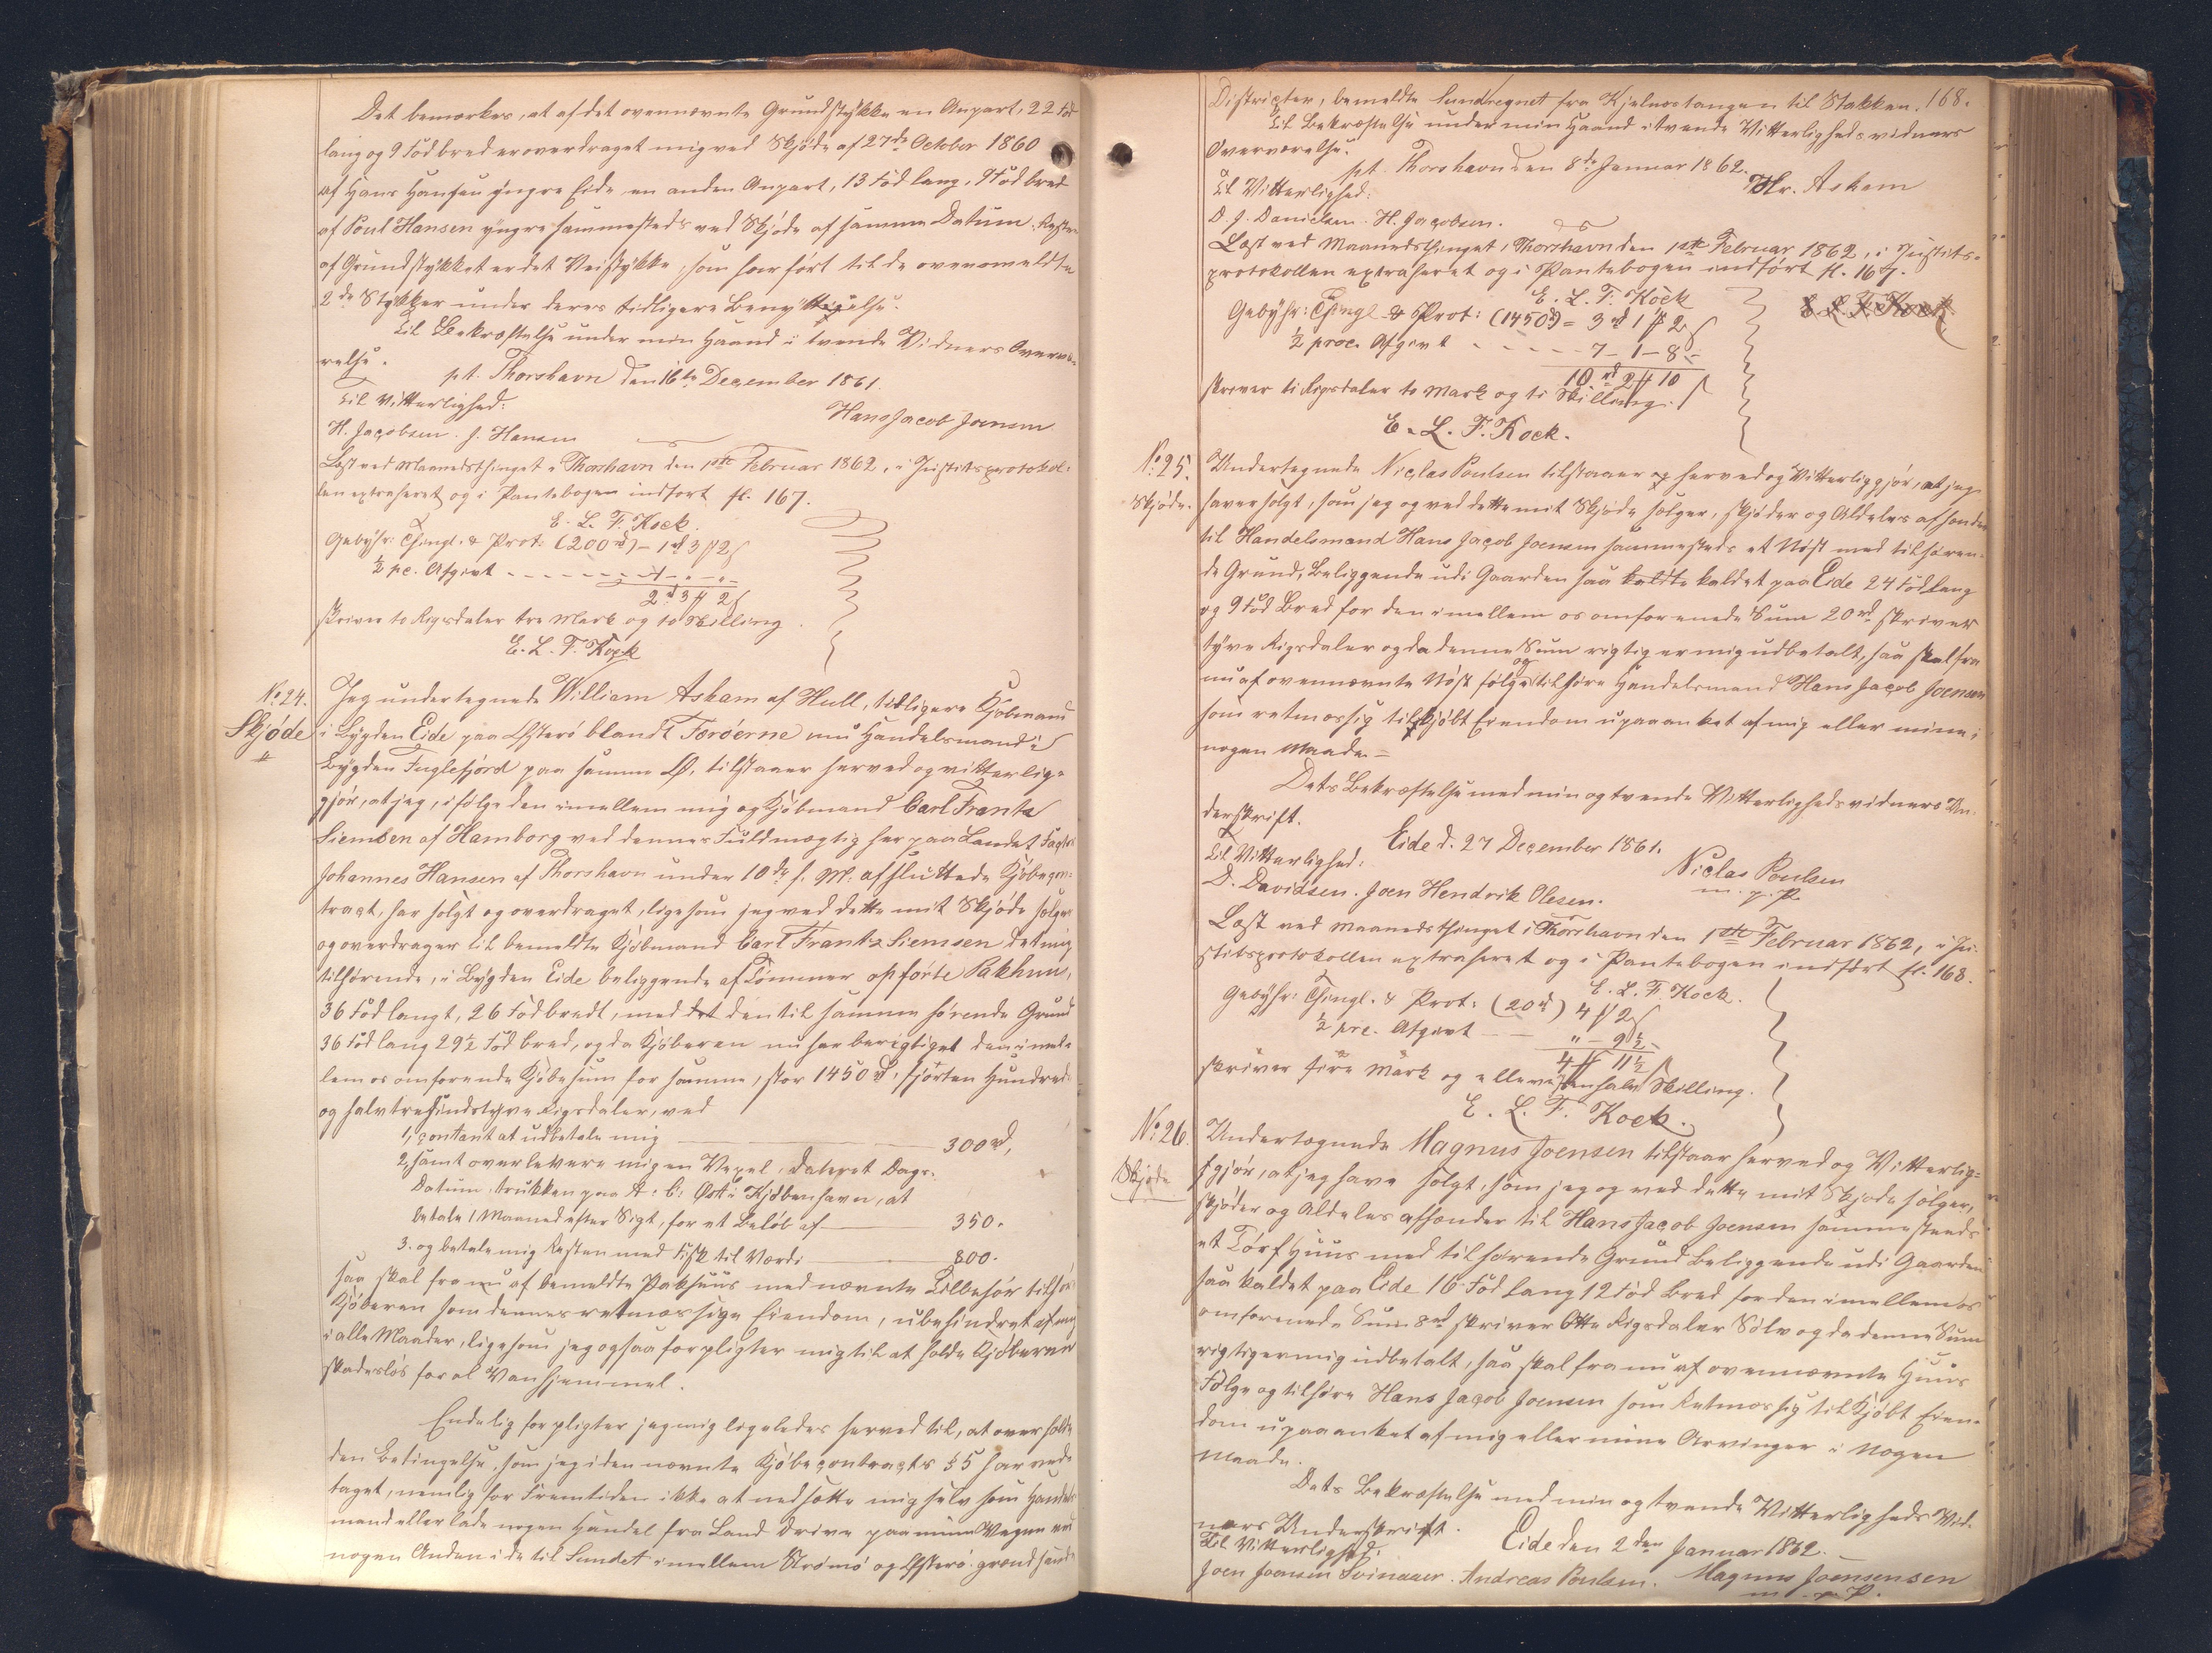 Det bemærkes, at af det ovennævnte Grundstykke en Anpart, 22 Fod
lang og 9 Fod bred er overdraget mig ved Skjøde af 27de October 1860
af Hans Hansen yngre Eide en anden Anpart, 13 Fod lang, 9 Fod bred
af Poul Hansen yngre sammesteds ved Skjøde af samme Datum. Resten
af Grundstykket er det Veistykke, som har ført til de ovenomeldte
2de Stykker under deres tidligere Benyttigelse.
Til Bekræftelse under min Haand i tvende Vidners Overvæ-
relse.
pt. Thorshavn den 16de December 1861.
Til Vitterlighed:
Hans Jacob Joensen
H. Jacobsen. J. Hansen
Læst ved Maanedsthinget i Thorshavn den 1ste Februar 1862, i Justitsprotokol-
len extraheret og i Pantebogen indført fl. 167.
E. L. F. Kock.
Gebyhr: Thingl. & Prot: (200 rd) - 1 rd 3 ℔ 2 ß
½ pc. Afgivt - - - - - 1 - " - " -
2 rd 3 ℔ 2 ß
skriver to Rigsdaler tre Mark og to Skilling.
E. L. F. Kock
No. 24.
Skjøde
Jeg undertegnede William Askam af Hull, tidligere Kjøbmand
i Bygden Eide paa Østerø blandt Færøerne nu Handelsmand i
Bygden Fuglefjord paa samme Ø, tilstaaer herved og vitterlig-
gjør, at jeg, ifølge den imellem mig og Kjøbmand Carl Frantz
Siemsen af Hamborg ved dennes Fuldmægtig her paa Landet Factor
Johannes Hansen af Thorshavn under 10de f. M. afsluttede Kjøbecon-
tract, har solgt og overdraget, ligesom jeg ved dette mit Skjøde sælger
og overdrager til bemeldte Kjøbmand Carl Frantz Siemsen det mig
tilhørende, i Bygden Eide beliggende af Tømmer opførte Pakhuus,
36 Fod langt, 26 Fod bredt, med det den til samme hørende Grund
36 Fod lang 29½ Fod bred, og da Kjøberen nu har berigtiget den imel-
lem os omforende Kjøbesum for samme, stor 1450 rd, fjorten Hundrede
og halvtresindstyve Rigsdaler, ved
1, contant at udbetale mig 300 rd,
2, samt overlevere mig en Vexel, dateret Dags-
Datum, trukken paa A: C: Ost i Kjøbenhavn, at
betale 1 Maaned efter Sigt, for et Beløb af 350.
3. og betale mig Resten med Fisk til Værdi 800.
saa skal fra nu af bemeldte Pakhuus med nævnte Tilbehør tilhøre
Kjøberen som dennes retmæssige Eiendom, ubehindret af mig
i alle Maader, ligesom jeg ogsaa forpligter mig til at holde Kjøberen
skadesløs for al Vanhjemmel.
Endelig forpligter jeg mig ligeledes herved til, at overholde
den Betingelse, som jeg i den nævnte Kjøbecontracts § 5 har ved-
taget, nemlig for Fremtiden ikke at nedsætte mig selv som Handels-
mand eller lade nogen Handel fra Land drive paa mine Vegne ved
nogen Anden i de til Sundet imellem Strømø og Østerø grændsende
Districter, bemeldte Sund regnet fra Kjelnæstangen til Stakken. 168.
Til Bekræftelse under min Haand i tvende Vitterlighedsvidners
Overværelse.
pt. Thorshavn den 8de Januar 1862.
Wr. Askam
Til Vitterlighed:
D. J. Danielsen. H. Jacobsen.
Læst ved Maanedsthinget i Thorshavn den 1ste Februar 1862, i Justits-
protokollen extraheret og i Pantebogen indført fl. 167.
E. L. F. Kock
E. L. F. Kock
Gebyhr: Thingl. & Prot: (1450 rd) = 3 rd 1 ℔ 2 ß
½ proc. Afgivt - - - - - 7 - 1 - 8 -
10 rd 2 ℔ 10 ß
skriver ti Rigsdaler to Mark og ti Skilling.
E. L. F. Kock.
No. 25.
Skjøde.
Undertegnede Niclas Poulsen tilstaaer og herved og Vitterliggjør, at jeg
haver solgt, som jeg og ved dette mit Skjøde sælger, skjøder og Aldeles afhænder
til Handelsmand Hans Jacob Joensen sammesteds et Nøst med tilhøren-
de Grund, Beliggende udi Gaarden saa kaldte kaldet paa Eide 24 Fod lang
og 9 Fod Bred for den imellem os omforenede Sum 20 rd skriver
tyve Rigsdaler og da denne Sum rigtig er mig udbetalt, saa skal fra
nu af ovennævnte Nøst følge og tilhøre Handelsmand Hans Jacob Joensen
som retmæssig tilkjøbt Eiendom upaaanket af mig eller mine i
nogen Maade. =
Dets Bekræftelse med min og tvende Vitterlighedsvidners Un-
derskrift.
Eide d. 27 December 1861.
Til Vitterlighed:
Niclas Poulsen
m. p. P.
D. Davidsen. Joen Hendrik Olesen.
Læst ved Maanedsthinget i Thorshavn den 1ste Februar 1862, i Ju-
stitsprotokollen extraheret og i Pantebogen indført fl. 168.
E. L. F. Kock.
Gebyhr: Thingl. & Prot: (20 rd) 4 ℔ 2 ß
½ prc. Afgivt - - " - 9½ -
4 ℔ 11½ ß
skriver fire Mark og elleve en halv Skilling.
E. L. F. Kock.
No. 26.
Skjøde
Undertegnede Magnus Joensen tilstaar herved og Vitterlig-
gjør, at jeg have solgt, som jeg og ved dette mit Skjøde sælger,
skjøder og Aldeles afhænder til Hans Jacob Joensen sammesteds
et Tørfhuus med tilhørende Grund Beliggende udi Gaarden
saa kaldet paa Eide 16 Fod lang 12 Fod Bred for den imellem os
omforenede Sum 8 rd skriver Otte Rigsdaler Sølv og da denne Sum
rigtig er mig udbetalt, saa skal fra nu af ovennævnte Huus
Følge og tilhøre Hans Jacob Joensen som Retmæssig tilkjøbt Eien-
dom upaaanket af mig eller mine Arvinger i Nogen
Maade.
Dets Bekræftelse med min og tvende Vitterligheds Vid-
ners Underskrift.
Eide den 2den Januar 1862.
Til Vitterlighed:
Joen Joensen Svinaaer. Andreas Poulsen. Magnus Joensensen
m. p. P.